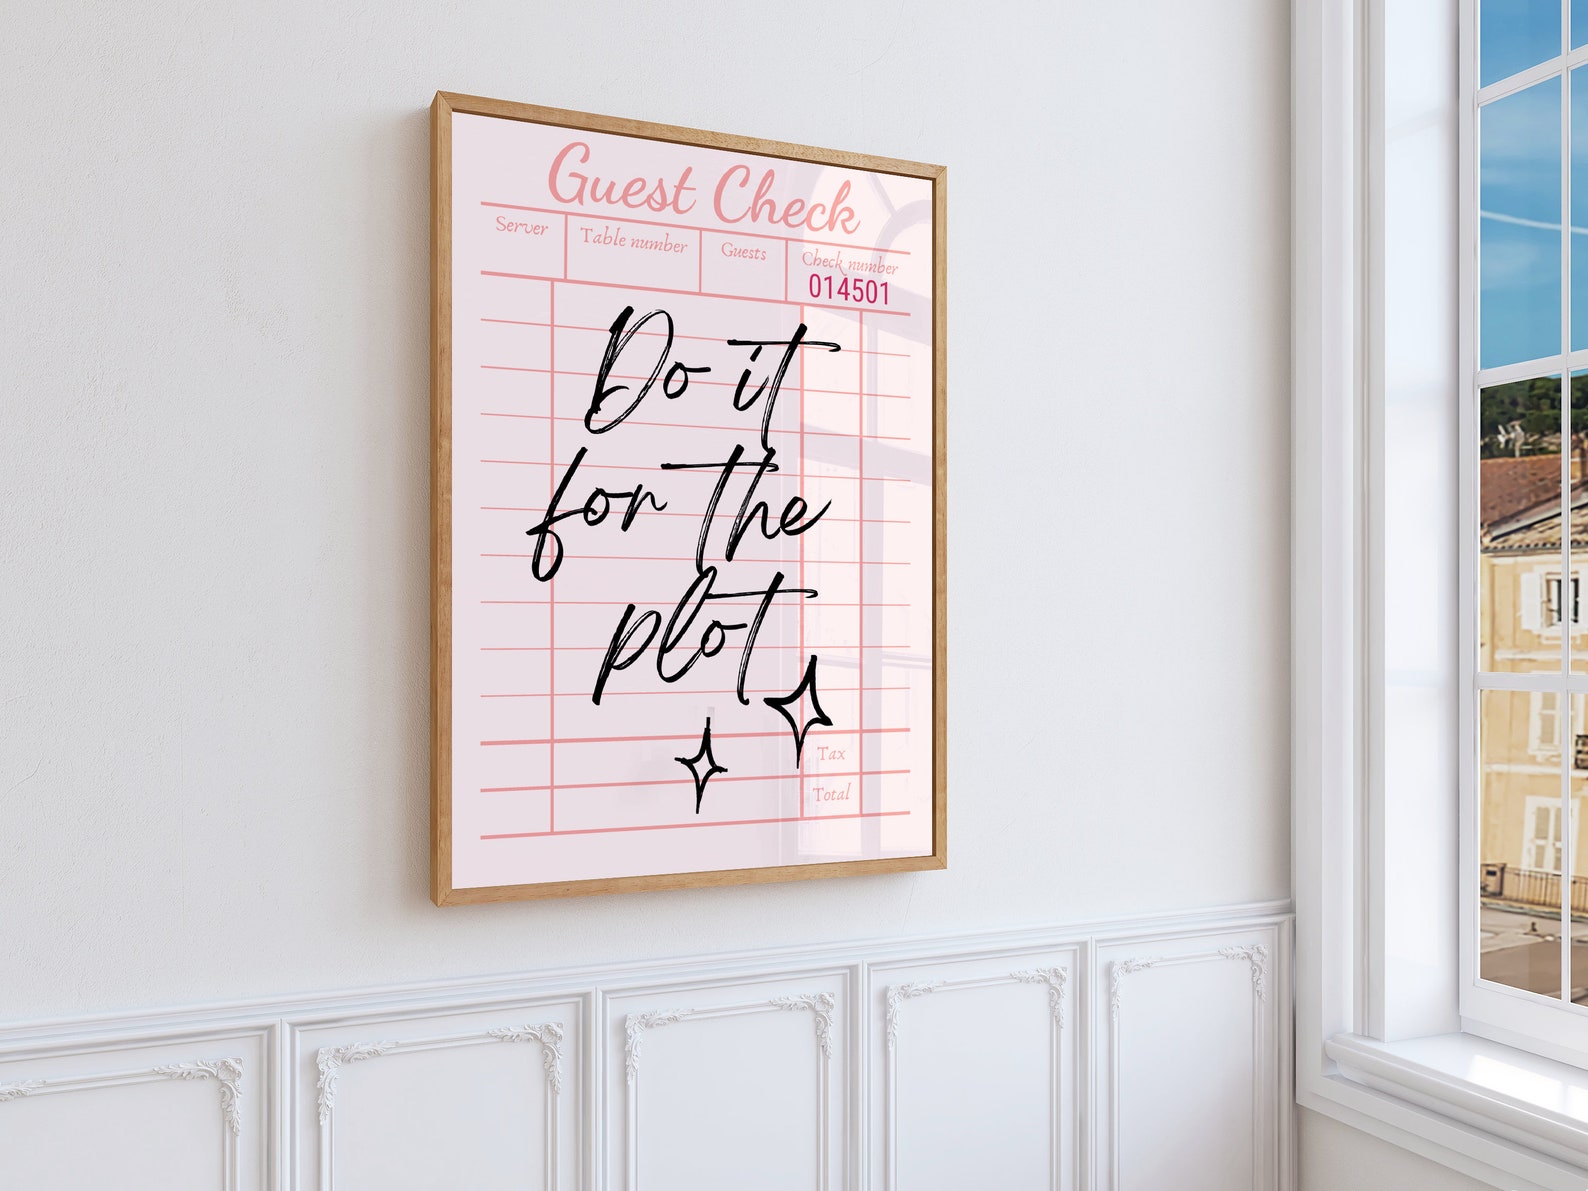 Guest Check
Server Table number Guests Check number
014501
Do it
for the
plot
Tax
Total